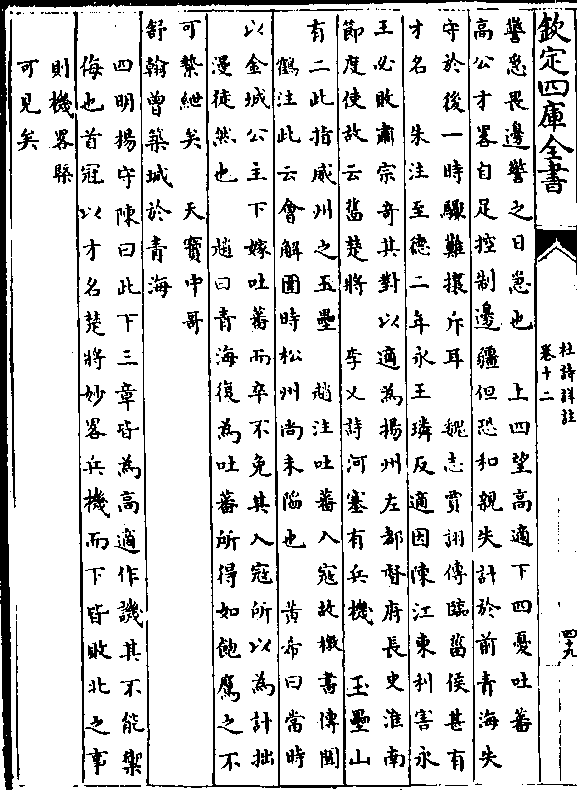 欽定四庫全書
杜詩詳註
卷十二
四九
警急畏邊警之日急也 上四望高適下四憂吐蕃
高公才畧自足控制邊疆但恐和親失計於前青海失
守於後一時驟難攘斥耳 魏志賈詡傳臨菑侯甚有
才名 朱注至德二年永王璘反適因陳江東利害永
王必敗肅宗奇其對以適為揚州左都督府長史淮南
節度使故云舊楚將 李乂詩河塞有兵機 玉壘山
有二此指威州之玉壘 趙注吐蕃入寇故檄書傳聞
鶴注此云會解圍時松州尚未陷也 黃希曰當時
以金城公主下嫁吐蕃而卒不免其入寇所以為計拙
漫徒然也 趙曰青海復為吐蕃所得如飽鷹之不
可縶紲矣 天寶中哥
舒翰曾築城於青海
四明楊守陳曰此下三章皆為高適作譏其不能禦
侮也首冠以才名楚將妙畧兵機而下皆敗北之事
則機畧槩
可見矣